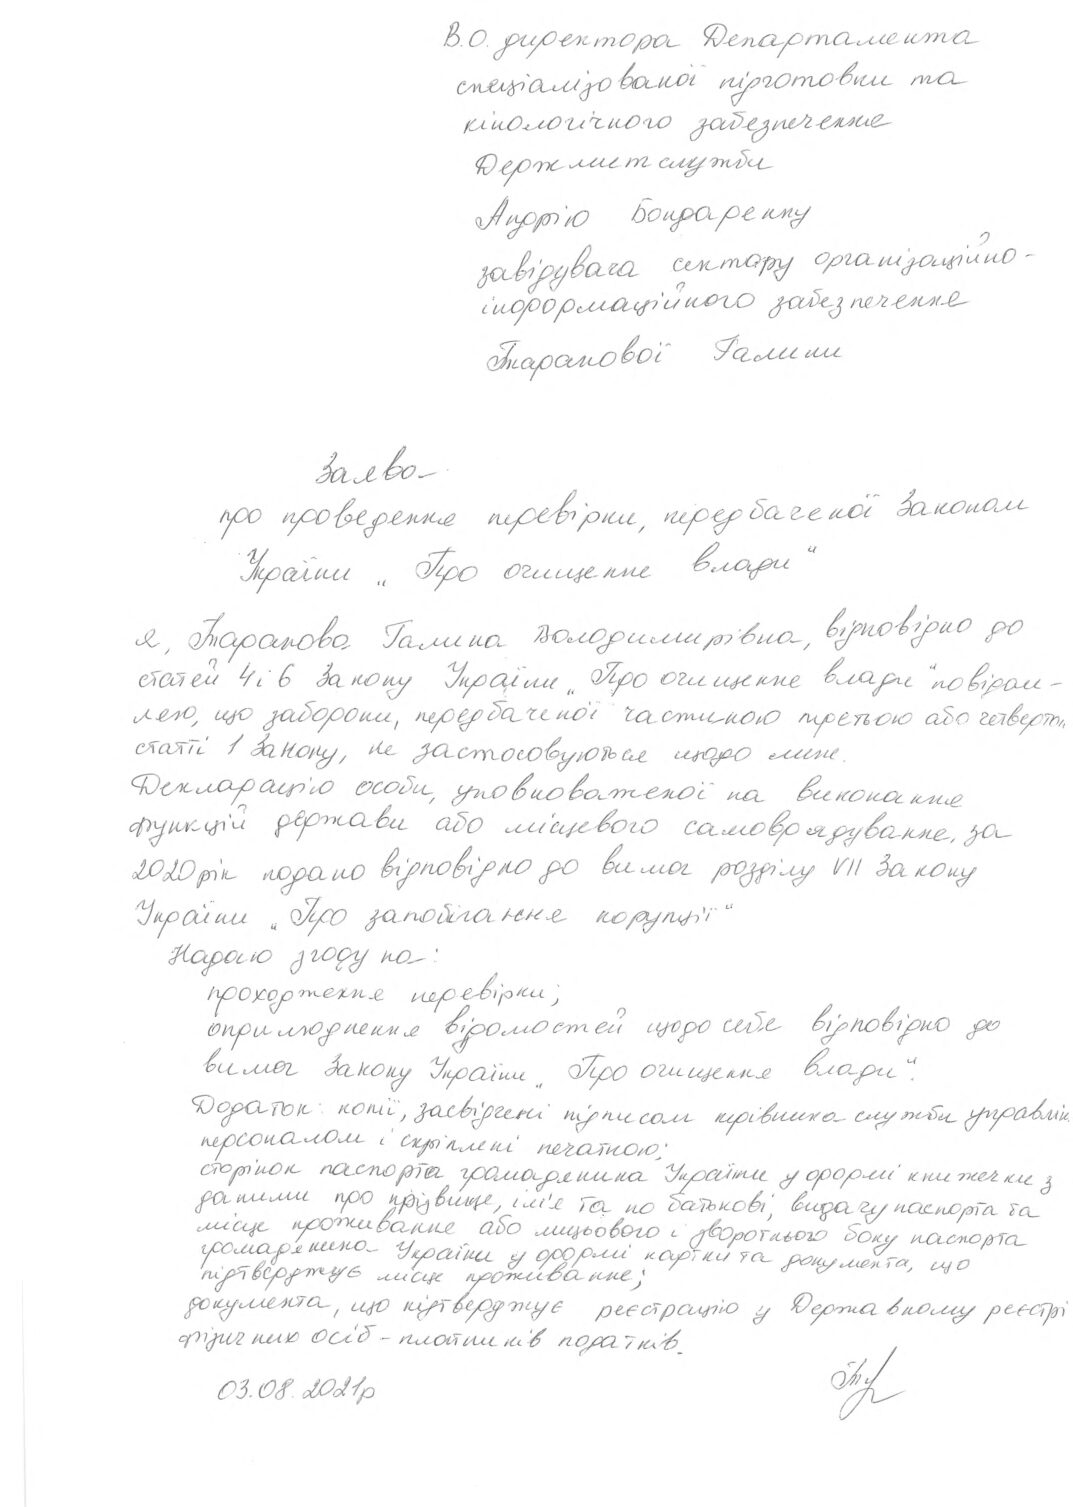 В.О. директора Департамента
спеціалізованої підготовки та
кінологічного забезпечення
Держмитслужби
Андрію Бондаренку
завідувача сектору організаційно-
інформаційного забезпечення
Таранової Галини
Заява
про проведення перевірки, передбаченої Законом
України „Про очищення влади“
Я, Таранова Галина Володимирівна, відповідно до
статей 4 і 6 Закону України „Про очищення влади“ повідом-
ляю, що заборони, передбаченої частиною третьою або четвертою
статті 1 Закону, не застосовуються щодо мене.
Декларацію особи, уповноваженої на виконання
функцій держави або місцевого самоврядування, за
2020 рік подано відповідно до вимог розділу VII Закону
України „Про запобігання корупції“
Надаю згоду на:
проходження перевірки;
оприлюднення відомостей щодо себе відповідно до
вимог Закону України „Про очищення влади“.
Додаток: копії, засвідчені підписом керівника служби управлін
персоналом і скріплені печаткою;
сторінок паспорта громадянина України у формі книжечки з
даними про прізвище, ім'я та по батькові, видачу паспорта та
місце проживання або лицьового і зворотнього боку паспорта
громадянина України у формі картки та документа, що
підтверджує місце проживання;
документа, що підтверджує реєстрацію у Державному реєстрі
фізичних осіб - платників податків.
03.08.2021р